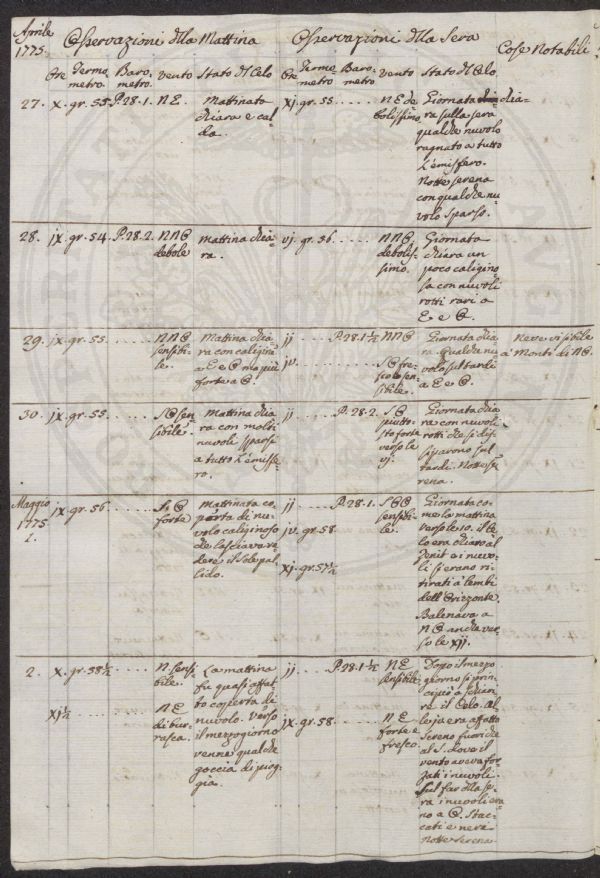 Aprile 1775. Osservazioni dlla Mattina Osservazioni dlla Sera Cose Notabili
Ore Termometro. Barometro. Vento Stato dl Celo Ore Termometro Barometro Vento Stato dl Celo
27. x. gr. 55. P. 28. 1. N E. Mattinata
chiara e cal-
da.
xj. gr. 55 NE de-
bolissimo.
Giornata chia-
ra sulla sera
qualche nuvolo
ragnato a tutto
l'emisfero.
Notte serena
con qualche nu-
volo sparso.
28. jx. gr. 54. P. 28. 2. NNE
debole
Mattina chia-
ra.
vj. gr. 56 NNE
debolis-
simo.
Giornata
chiara un
poco caligino-
sa con nuvoli
rotti rari a
E e
29. jx. gr. 55. NNE
sensibi-
le.
Mattina chia-
ra con caligine
a E e ma più
forte a
jj P. 28. 1 ½ NNE
jv. SE fre-
sco e sen-
sibile.
Giornata chia-
ra. Qualche nu-
volo sul tardi
a E e
Neve visibile
a' Monti di NE.
30. jx. gr. 55. SE sen-
sibile.
Mattina chia-
ra con molti
nuvoli sparsi
a tutto l'emisfe-
ro.
jj P. 28. 2. SE
piutto-
sto forte
verso le
vj.
Giornata chia-
ra con nuvoli
rotti che si dis-
siparono sul
tardi. Notte se-
rena.
Maggio
1775
1.
jx. gr. 56 S. E
forte
Mattinata co-
perta di nu-
volo caliginoso
che lasciava ve-
dere il Sole pal-
lido.
jj P. 28. 1. SEE
sensibi-
le.
jv. gr. 58.
xj. gr. 57 ½
Giornata co-
me la mattina
verso le 10. il Ce-
lo era chiaro al
Zenit e i nuvo-
li si erano ri-
tirati a' lembi
dell'Orizzonte.
Balenava a
NE anche ver-
so le xjj.
2. x. gr. 58 ½ N. sensi-
bile.
xj ½ NE
di bur-
rasca.
La mattina
fu quasi affat-
to coperta di
nuvolo. Verso
il mezzogiorno
venne qualche
goccia di piog-
gia.
jj P. 28. 1 ½ NE
sensibile
jx. gr. 58. NE
forte e
fresco.
Dopo il mezzo
giorno si prin-
cipiò a schiari-
re il Celo. Al-
le ja era affatto
sereno fuori che
al S. dove il
vento aveva for-
zati i nuvoli.
Sul far dlla se-
ra i nuvoli era-
no a stac-
cati e neri
Notte serena.